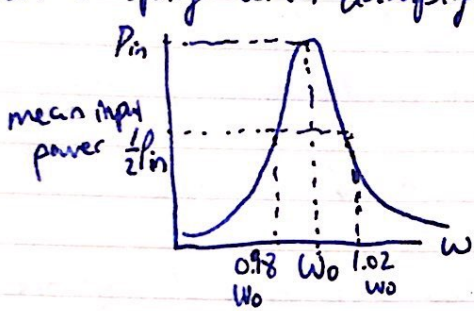 damping
Pin
mean input
power ½Pin
0.98 ω₀ ω₀ 1.02 ω₀
ω